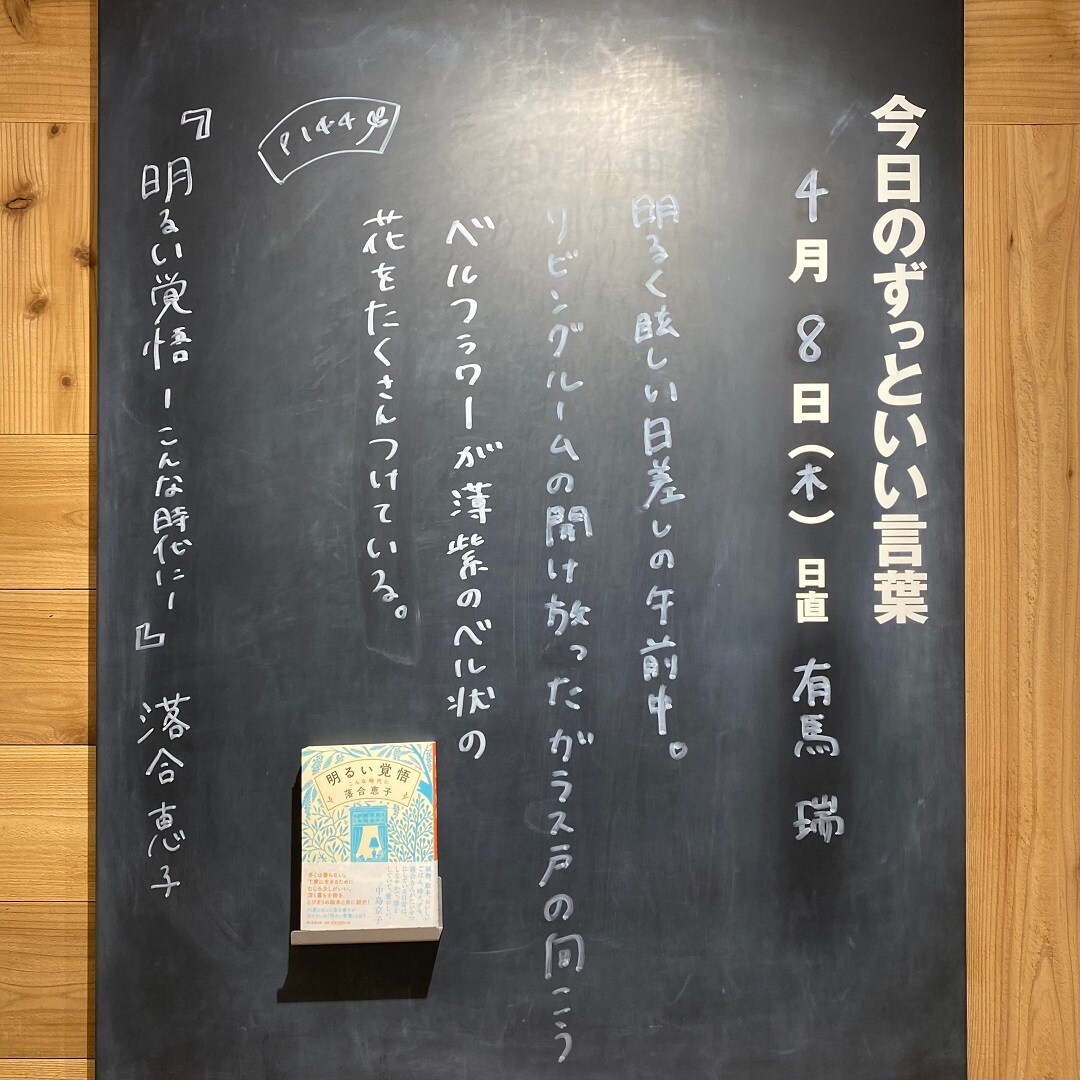 今日のずっといい言葉
4月8日(木) 日直 有馬 瑞
明るく眩しい日差しの午前中。
リビングルームの開け放ったガラス戸の向こう
ベルフラワーが薄紫のベル状の
花をたくさんつけている。
P144
『明るい覚悟ーこんな時代にー』 落合恵子
明るい覚悟
こんな時代に
落合恵子
中島京子